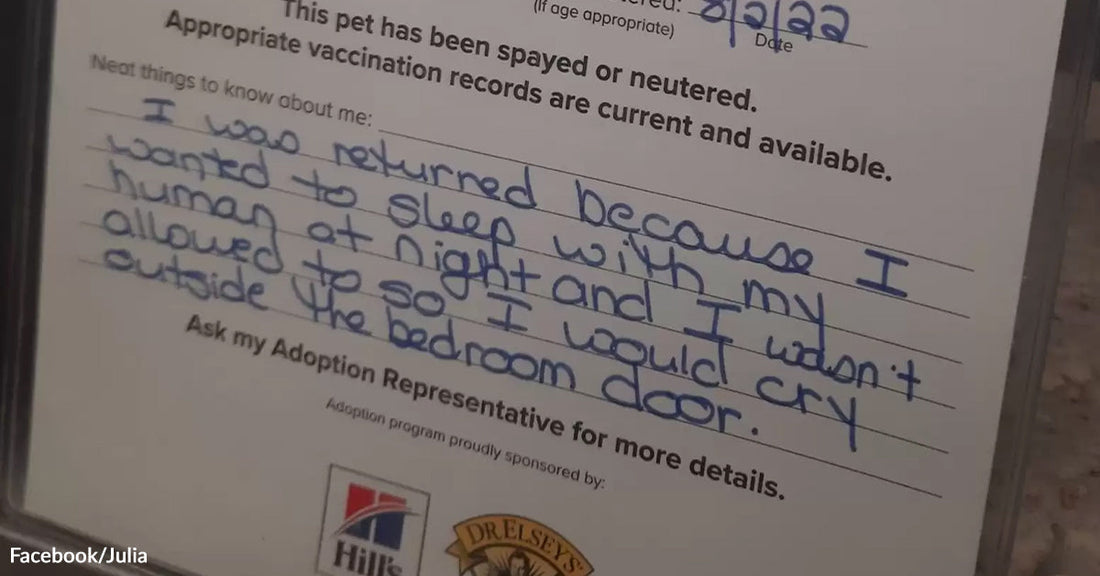 (If age appropriate)
Date
This pet has been spayed or neutered.
Appropriate vaccination records are current and available.
Neat things to know about me:
I was returned because I
wanted to sleep with my
human at night and I wasn't
allowed to so I would cry
outside the bedroom door.
Ask my Adoption Representative for more details.
Adoption program proudly sponsored by:
Hill's
DR ELSEYS'
Facebook/Julia